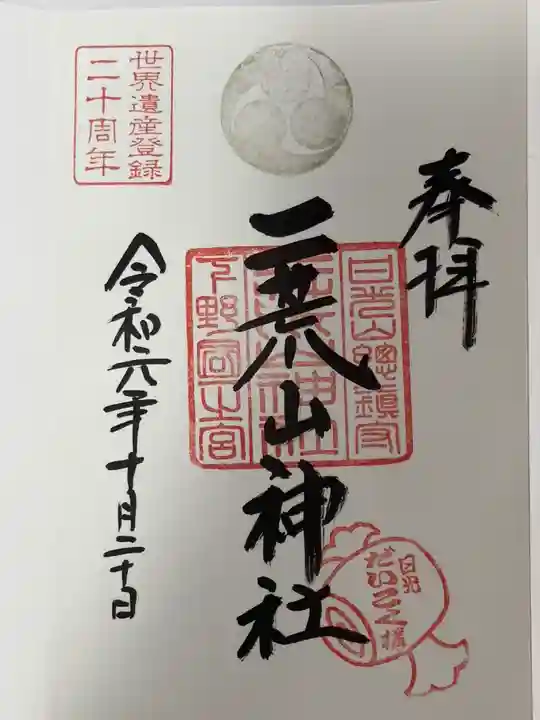 奉拝
日光山總鎮守
二荒山神社
下野國一之宮
世界遺産登録
二十周年
令和六年十月二十日
日光
だいこく様